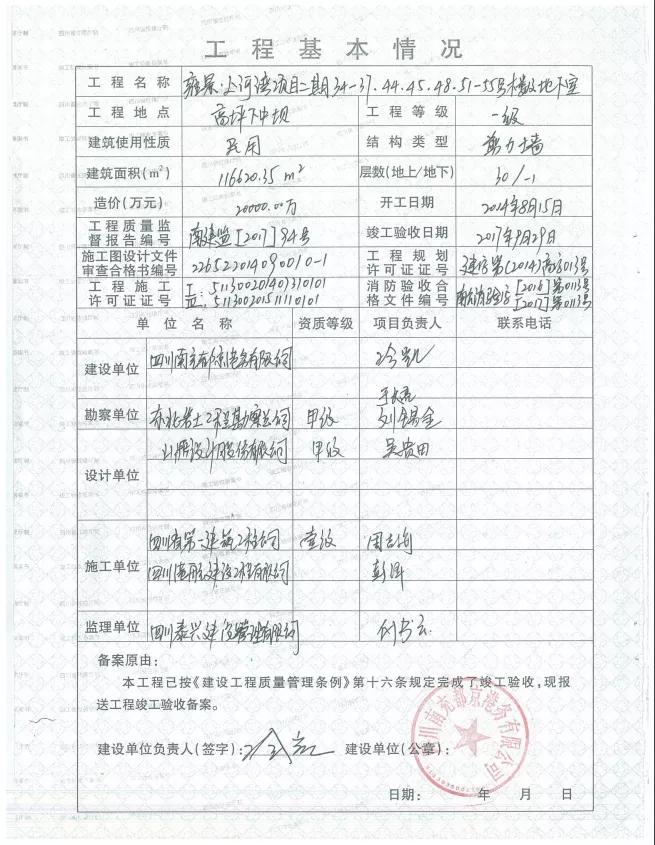 工程基本情况
工程名称 雍景·上河湾项目二期34-37.44.45.48.51-55号楼及地下室
工程地点 高坪下中坝 工程等级 一级
建筑使用性质 民用 结构类型 剪力墙
建筑面积(m²) 116620.35 m² 层数(地上/地下) 30/-1
造价(万元) 20000.00万 开工日期 2014年8月15日
工程质量监督报告编号 南建监[2017]94号 竣工验收日期 2017年9月29日
施工图设计文件审查合格书编号 226522014090010-1 工程规划许可证证号
工程施工许可证证号 511300201407310101 消防验收合格文件编号 [2016]第0113号
511300201511110101 [2017]第0113号
单位名称 资质等级 项目负责人 联系电话
建设单位
勘察单位 甲级 刘锡金
设计单位 山鼎设计股份有限公司 甲级 吴贵田
施工单位 四川省第一建筑工程公司 壹级
彭洋
监理单位 四川泰兴建设管理有限公司 付书云
备案原由：
本工程已按《建设工程质量管理条例》第十六条规定完成了竣工验收，现报
送工程竣工验收备案。
建设单位负责人(签字): 建设单位(公章)：
四川南充都京港务有限公司
日期： 年 月 日